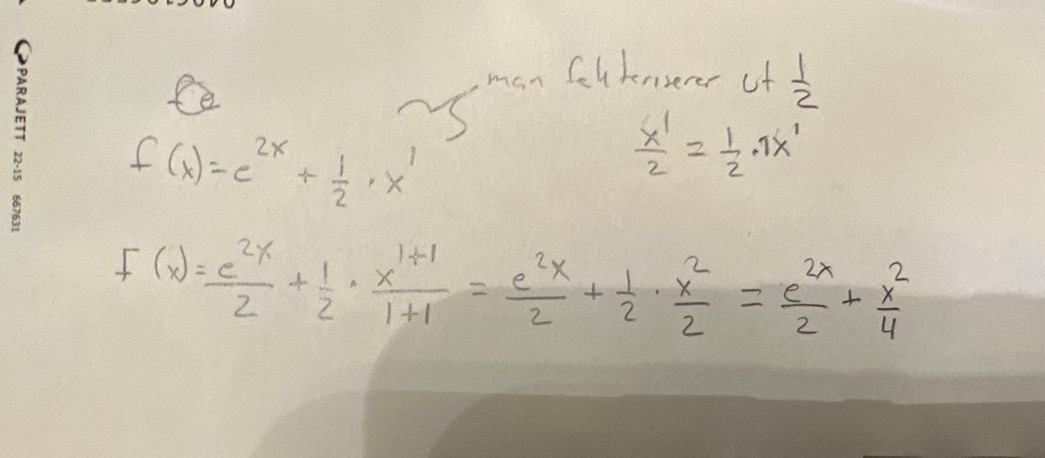 PARAJETT 22-15 667631
man fakteriserer ut 1/2
x¹/2 = 1/2 · 1x¹
f(x) = e^2x + 1/2 · x¹
F(x) = e^2x/2 + 1/2 · x^1+1/1+1 = e^2x/2 + 1/2 · x²/2 = e^2x/2 + x²/4